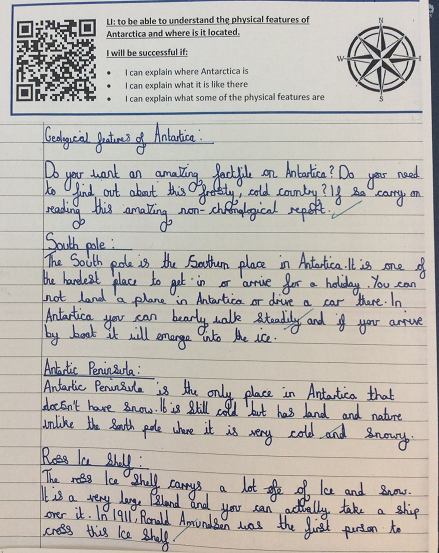 LI: to be able to understand the physical features of
Antarctica and where is it located.
I will be successful if:
• I can explain where Antarctica is
• I can explain what it is like there
• I can explain what some of the physical features are
N
W
S
Geological features of Antartica:
Do you want an amazing factfile on Antartica? Do you need
to find out about this frosty, cold country? If so carry on
reading this amazing non-chronological report.
South pole:
The South pole is the Southurn place in Antartica. It is one of
the hardest place to get in or arrive for a holiday. You can
not land a plane in Antartica or drive a car there. In
Antartica you can bearly walk steadily and if you arrive
by boat it will emerge into the ice.
Antartic Peninsula:
Antartic Peninsula is the only place in Antartica that
doesn't have snow. It is still cold but has land and nature
unlike the south pole where it is very cold and snowy.
Ross Ice Shelf:
The ross Ice Shelf carrys a lot of Ice and snow.
It is a very large Island and you can actually take a ship
over it. In 1911, Ronald Amundsen was the first person to
cross this Ice Shelf.